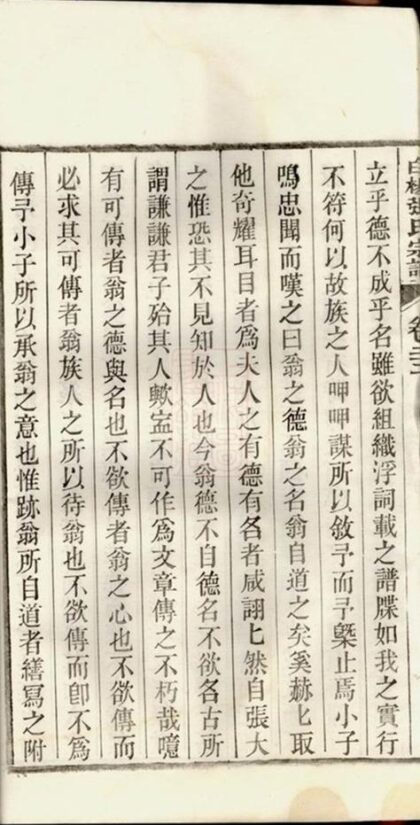 氏宗譜 卷
立乎德不成乎名雖欲組織浮詞載之譜牒如我之實行
不符何以故族之人呷呷謀所以敘予而予槩止焉小子
鳴忠聞而嘆之曰翁之德翁之名翁自道之矣奚赫匕取
他奇耀耳目者爲夫人之有德有名者咸詡匕然自張大
之惟恐其不見知於人也今翁德不自德名不欲名古所
謂謙謙君子殆其人歟寍不可作爲文章傳之不朽哉噫
有可傳者翁之德與名也不欲傳者翁之心也不欲傳而
必求其可傳者翁族人之所以待翁也不欲傳而卽不爲
傳予小子所以承翁之意也惟跡翁所自道者繕寫之附